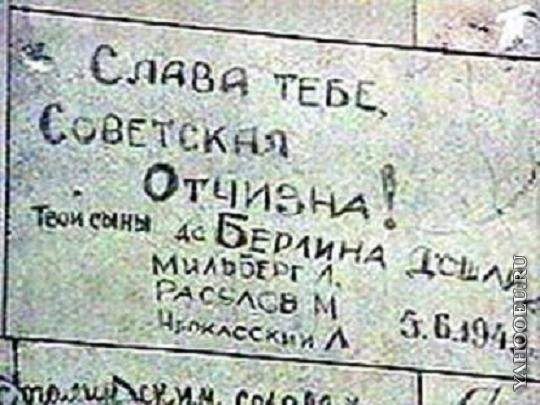 СЛАВА ТЕБЕ,
СОВЕТСКАЯ
ОТЧИЗНА!
ТВОИ СЫНЫ ДО БЕРЛИНА ДОШЛИ
МИЛЬБЕРГ Л.
РАСУЛОВ М
ЧЕРКАССКИЙ Л 5.6.194
YAHOOEU.RU